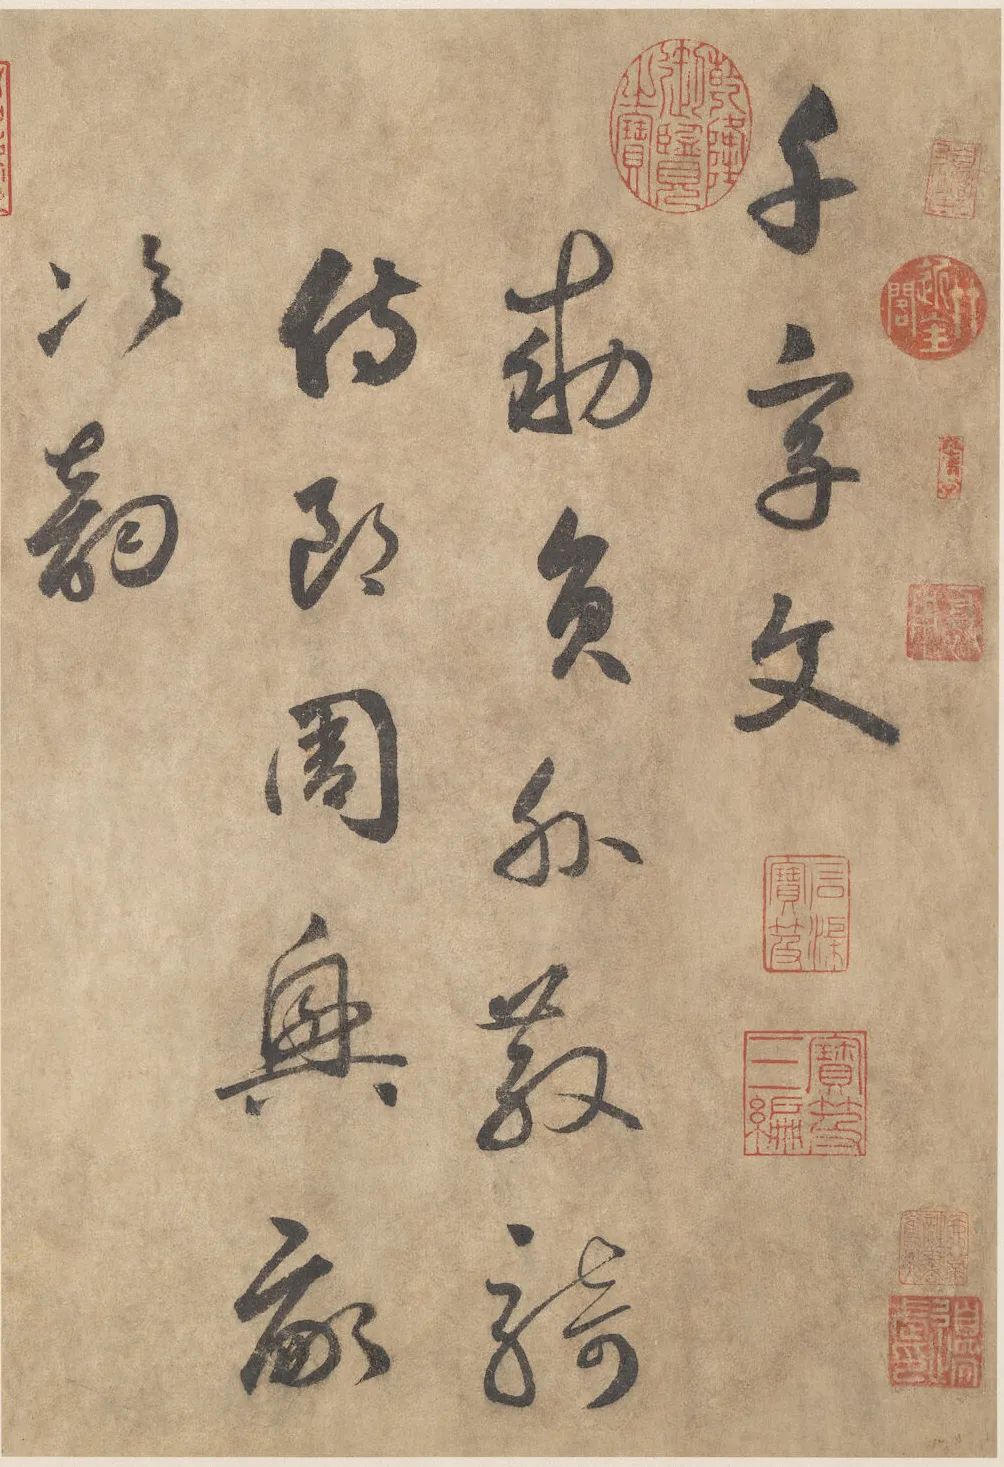 千字文
勅員外散騎
侍郎周興嗣
次韵
乾隆御覽之寶
石渠寶笈
寶笈三編